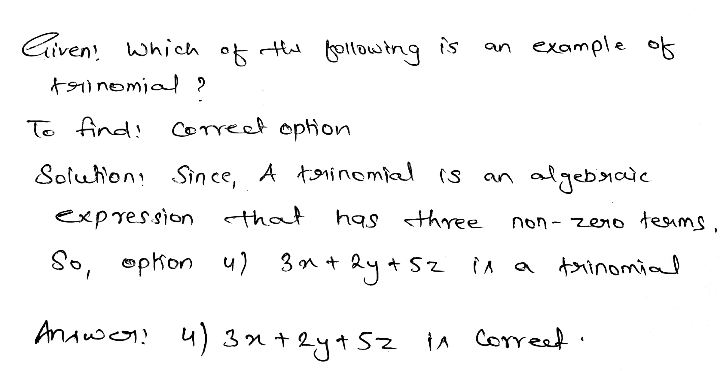 Given: Which of the following is an example of
trinomial ?
To find: Correct option
Solution: Since, A trinomial is an algebraic
expression that has three non-zero terms.
So, option 4) 3x + 2y + 5z is a trinomial
Answer: 4) 3x + 2y + 5z is correct.